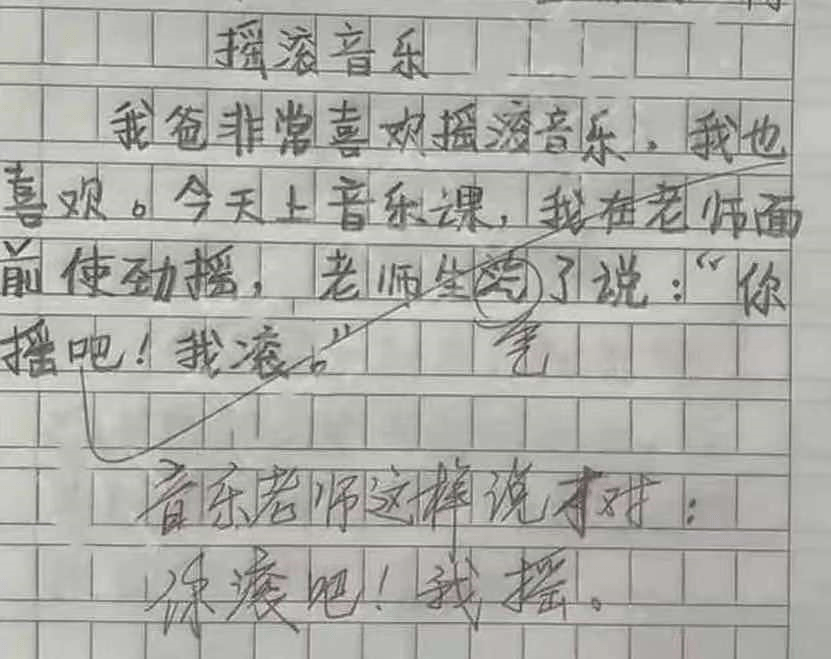 摇滚音乐
我爸非常喜欢摇滚音乐,我也
喜欢。今天上音乐课,我在老师面
前使劲摇,老师生汽了说:“你
摇吧!我滚。”
气
音乐老师这样说才对:
你滚吧!我摇。